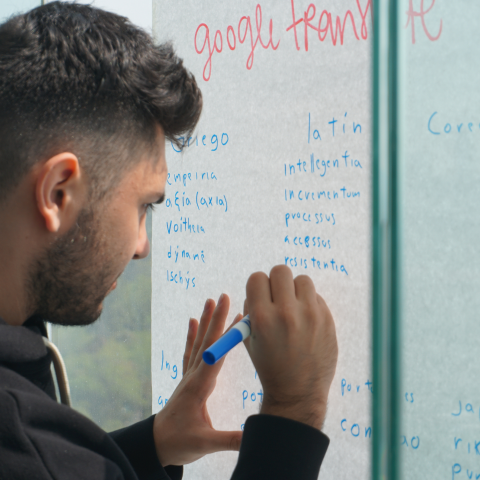 google trans te
griego
empeiria
αξία (axía)
Voítheia
dýnamē
Ischýs
latin
intellegentia
incrementum
processus
accessus
resistentia
Core
Ing
pot
port es
con ao
Ja
rik